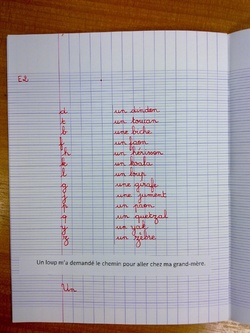 E2
d un dindon
t un toucan
b une biche
f un faon
h un hérisson
k un koala
l un loup
g une girafe
j une jument
p un paon
q un quetzal
y un yak
z un zèbre
Un loup m'a demandé le chemin pour aller chez ma grand-mère.
Un